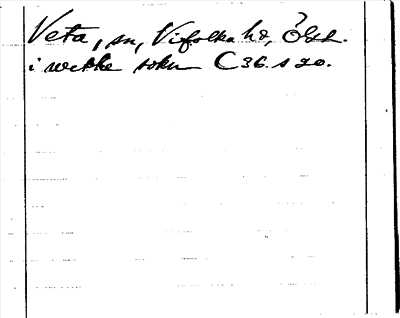 Veta, sn, Vifolka hd, Ögtl.
i wetke sokn C 36. s 20.